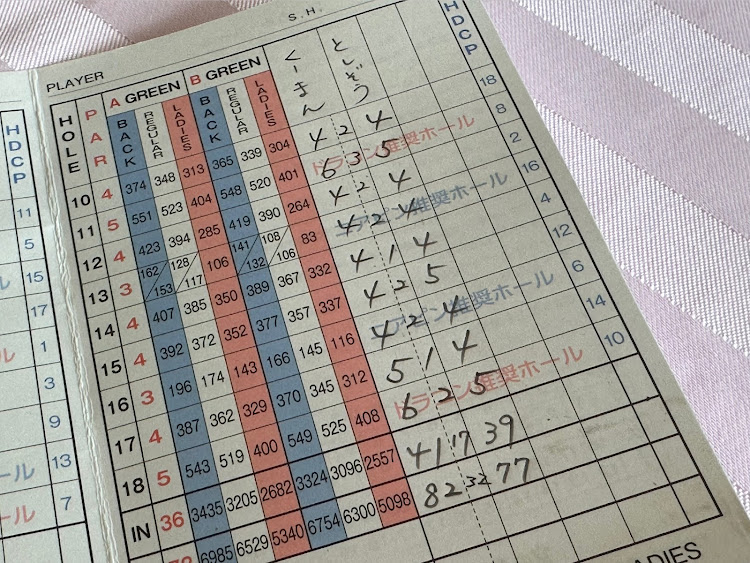 S.H.
PLAYER
HOLE PAR A GREEN B GREEN くーまん としぞう HDCP
BACK REGULAR LADIES BACK REGULAR LADIES
10 4 374 348 313 365 339 304 4 2 4 18
11 5 551 523 404 548 520 401 ドラコン推奨ホール 6 3 5 8
12 4 423 394 285 419 390 264 4 2 4 2
13 3 162/153 128/117 106 141/132 108/106 83 ニアピン推奨ホール 4 2 4 16
14 4 407 385 350 389 367 332 4 1 4 4
15 4 392 372 352 377 357 337 4 2 5 12
16 3 196 174 143 166 145 116 ニアピン推奨ホール 4 2 4 6
17 4 387 362 329 370 345 312 5 1 4 14
18 5 543 519 400 549 525 408 ドラコン推奨ホール 6 2 5 10
IN 36 3435 3205 2682 3324 3096 2557 41 17 39
72 6985 6529 5340 6754 6300 5098 82 32 77
HDCP
11
5
15
17
1
3
9
13
7
ール
ール
ール
ール
ADIES